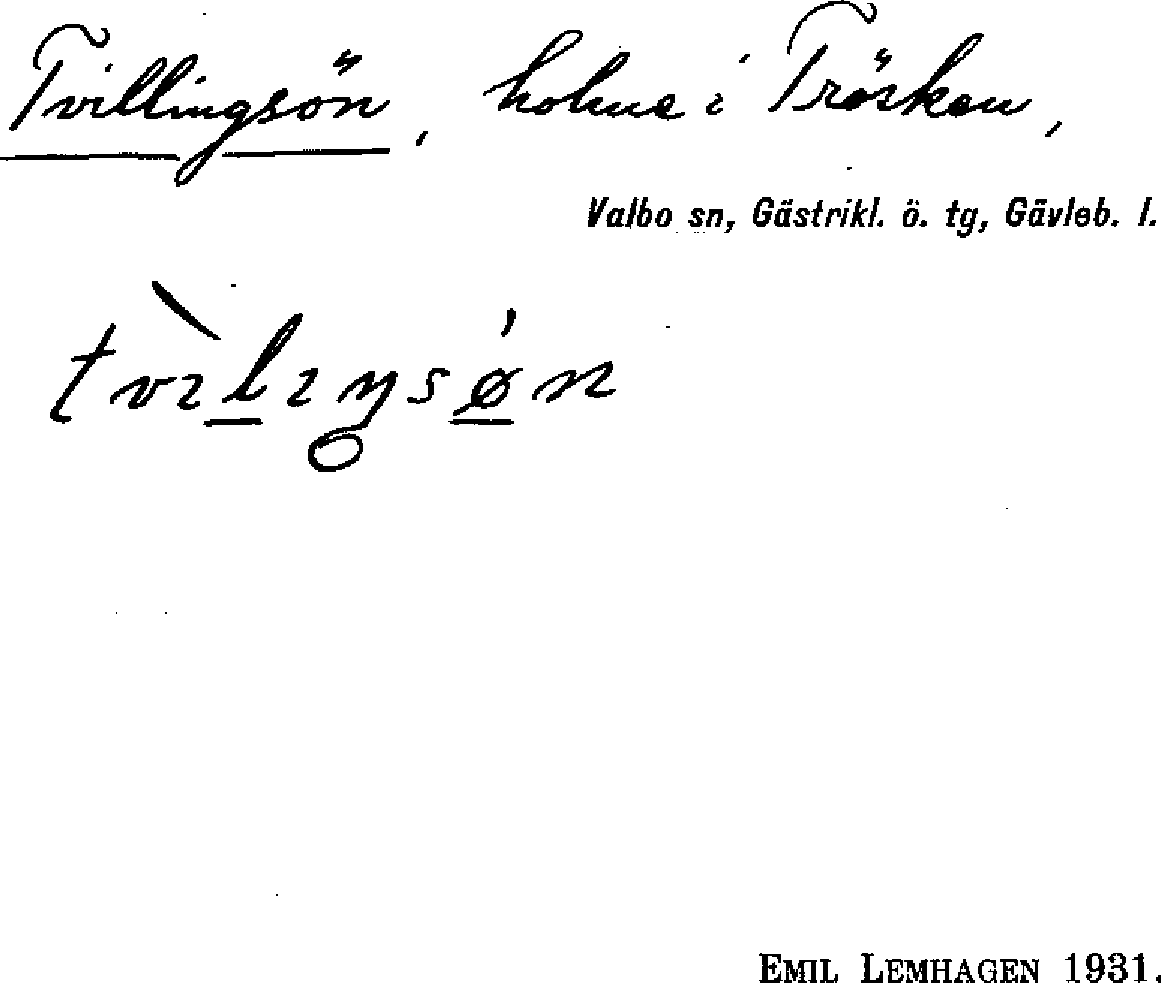 Tvillingsön, holme i Trösken,
Valbo sn, Gästrikl. ö. tg, Gävleb. l.
tvìlıŋsǿn
EMIL LEMHAGEN 1931.